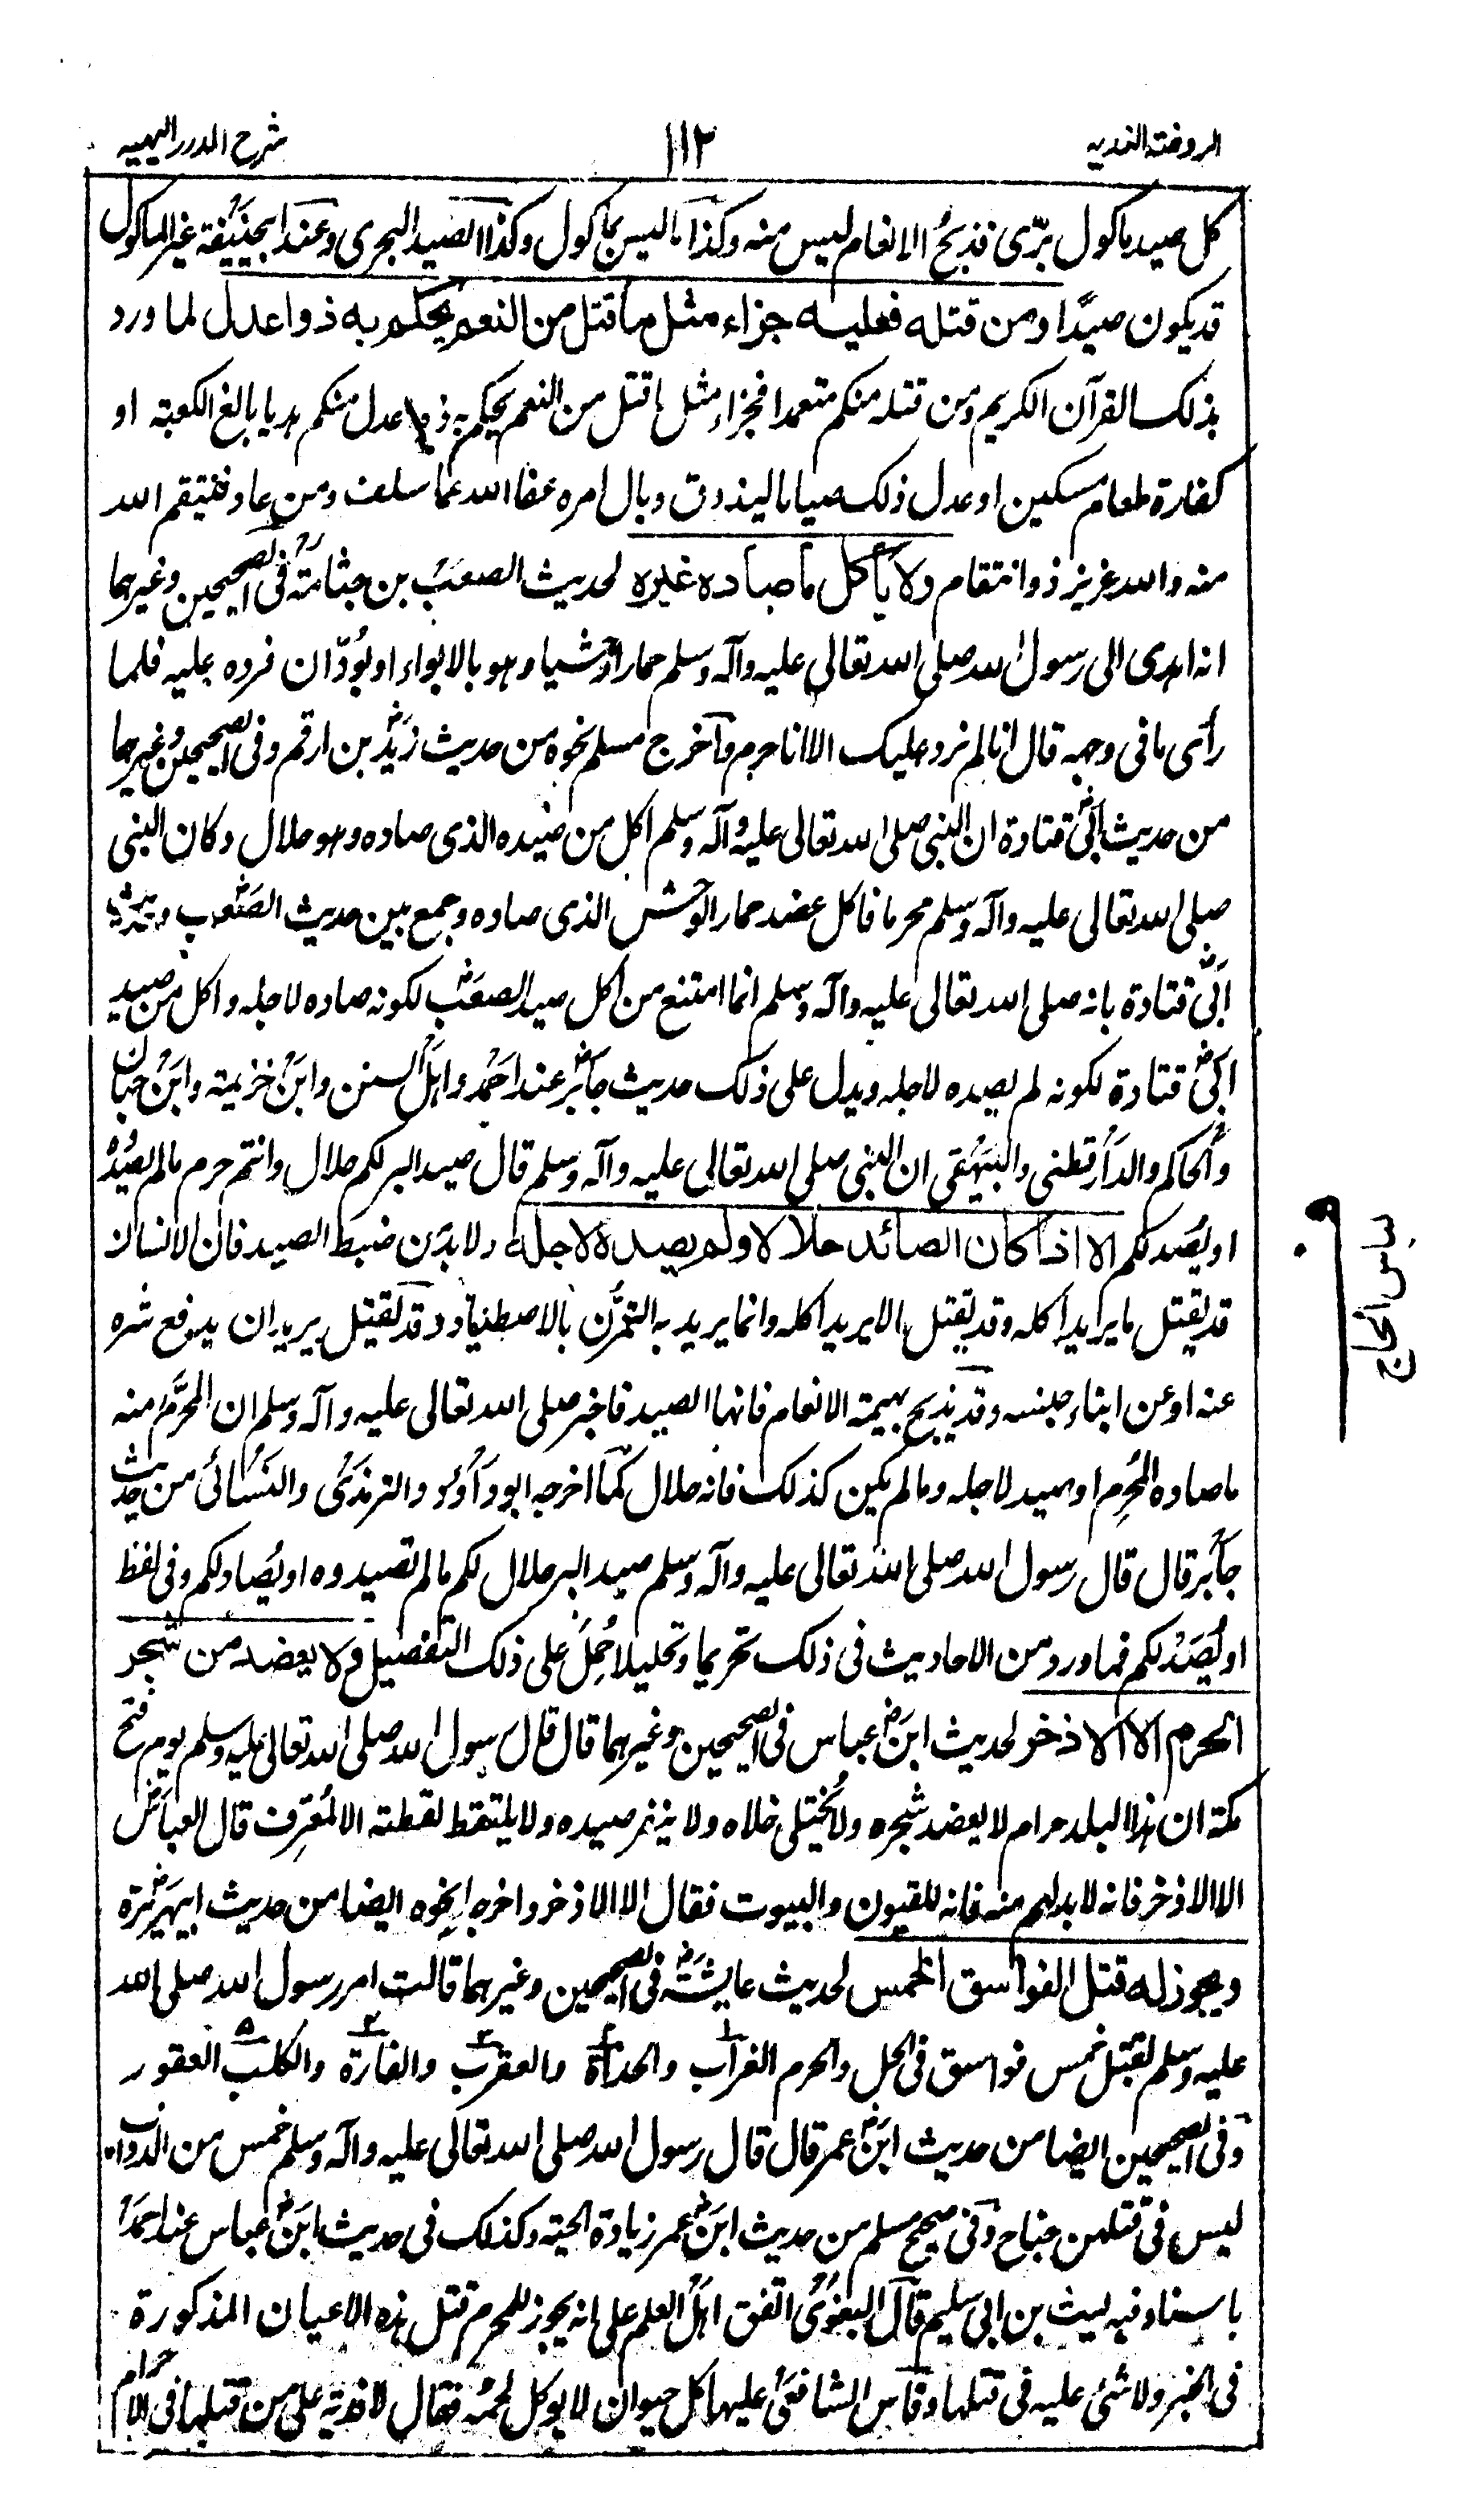 الروضة الندية
١١٢
شرح الدرر البهية
كل صيد ماكول برّى فذبح الانعام ليس منه وكذا ما ليس بماكول وكذا الصيد البحرى وعند ابى حنيفة غير الماكول
قد يكون صيدًا ومن قتله فعليه جزاء مثل ما قتل من النعم يحكم به ذوا عدل لما ورد
بذلك القرآن الكريم ومن قتله منكم متعمدا فجزاء مثل ما قتل من النعم يحكم به ذوا عدل منكم هديا بالغ الكعبة او
كفارة طعام مسكين او عدل ذلك صياما ليذوق وبال امره عفا الله عما سلف ومن عاد فينتقم الله
منه والله عزيز ذو انتقام ولا يأكل ما صاده غيره لحديث الصعب بن جثامة فى الصحيحين وغيرهما
انه اهدى الى رسول الله صلى الله تعالى عليه وآله وسلم حمارا وحشيا وهو بالابواء او بودّان فرده عليه فلما
رأى ما فى وجهه قال انا لم نرد عليك الا انا حرم واخرج مسلم نحوه من حديث زيد بن ارقم وفى الصحيحين وغيرهما
من حديث ابى قتادة ان النبى صلى الله تعالى عليه وآله وسلم اكل من صيده الذى صاده وهو حلال وكان النبى
صلى الله تعالى عليه وآله وسلم محرما فاكل عضد حمار الوحش الذى صاده وجمع بين حديث الصعب وحديث
ابى قتادة بانه صلى الله تعالى عليه وآله وسلم انما امتنع من اكل صيد الصعب لكونه صاده لاجله واكل من صيد
ابى قتادة لكونه لم يصده لاجله ويدل على ذلك حديث جابر عند احمد واهل السنن وابن خزيمة وابن حبان
والحاكم والدارقطنى والبيهقى ان النبى صلى الله تعالى عليه وآله وسلم قال صيد البر لكم حلال وانتم حرم ما لم تصيدوه
او يُصد لكم الا اذا كان الصائد حلالا ولم يصده لاجله ولا بد من ضبط الصيد فان الانسان
قد يقتل ما يريد اكله وقد يقتل ما لا يريد اكله وانما يريد به التمرّن بالاصطياد وقد يقتل يريد ان يدفع شره
عنه او عن ابناء جنسه وقد يذبح بهيمة الانعام فانها الصيد فاخبر صلى الله تعالى عليه وآله وسلم ان المحرّم منه
ما صاده المحرِم او صيد لاجله وما لم يكن كذلك فانه حلال كما اخرجه ابو داؤد والترمذى والنسائى من حديث
جابر قال قال رسول الله صلى الله تعالى عليه وآله وسلم صيد البر حلال لكم ما لم تصيدوه او يُصاد لكم وفى لفظ
او يُصَد لكم فما ورد من الاحاديث فى ذلك تحريما وتحليلا حُمل على ذلك التفصيل ولا يعضد من شجر
الحرم الا الاذخر لحديث ابن عباس فى الصحيحين وغيرهما قال قال رسول الله صلى الله تعالى عليه وسلم يوم فتح
مكة ان هذا البلد حرام لا يعضد شجره ولا يُختلى خلاه ولا ينفر صيده ولا يلتقط لقطته الا لمُعرِف قال العباس
الا الاذخر فانه لا بد لهم منه فانه للقيون والبيوت فقال الا الاذخر واخرجا نحوه ايضا من حديث ابى هريرة
ويجوز له قتل الفواسق الخمس لحديث عايشة فى الصحيحين وغيرهما قالت امر رسول الله صلى الله
عليه وسلم بقتل خمس فواسق فى الحل والحرم الغراب والحدأة والعقرب والفارة والكلب العقور
وفى الصحيحين ايضا من حديث ابن عمر قال قال رسول الله صلى الله تعالى عليه وآله وسلم خمس من الدواب
ليس فى قتلهن جناح وفى صحيح مسلم من حديث ابن عمر زيادة الحية وكذلك فى حديث ابن عباس عند احمد
باسناد فيه ليث بن ابى سليم قال البغوى اتفق اهل العلم على انه يجوز للمحرم قتل هذه الاعيان المذكورة
فى الخبر ولا شئ عليه فى قتلها وقاس الشافعى عليها كل حيوان لا يوكل لحمه فقال لا فدية على من قتلها فى الاحرام